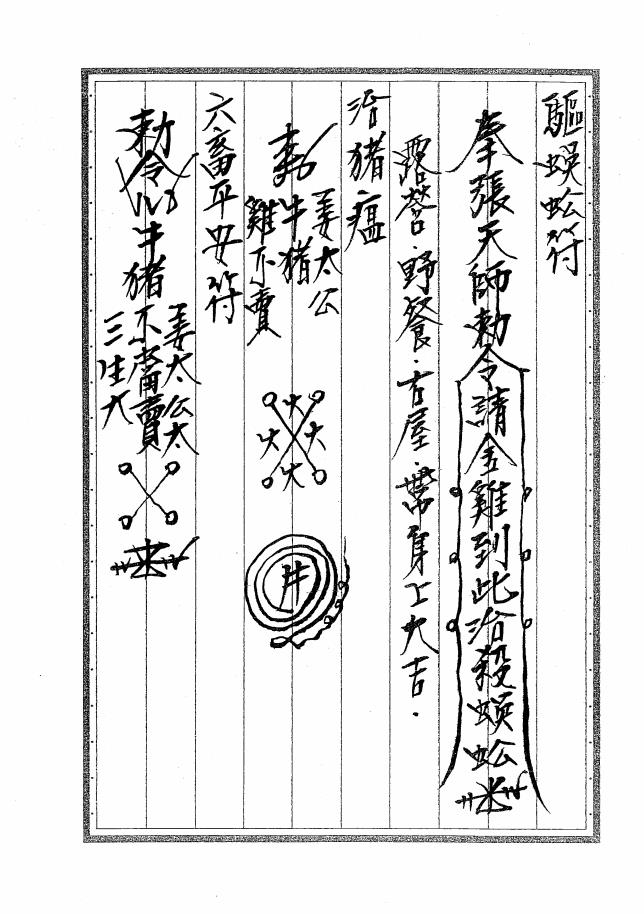 驅蜈蚣符
奉張天師勅令請金雞到此治殺蜈蚣
露營·野餐·古屋·帶身上大吉·
治豬瘟
姜太公
牛豬
雞不賣
火火火火
井
六畜平安符
姜太公太
勅令牛豬不畜賣
三生大